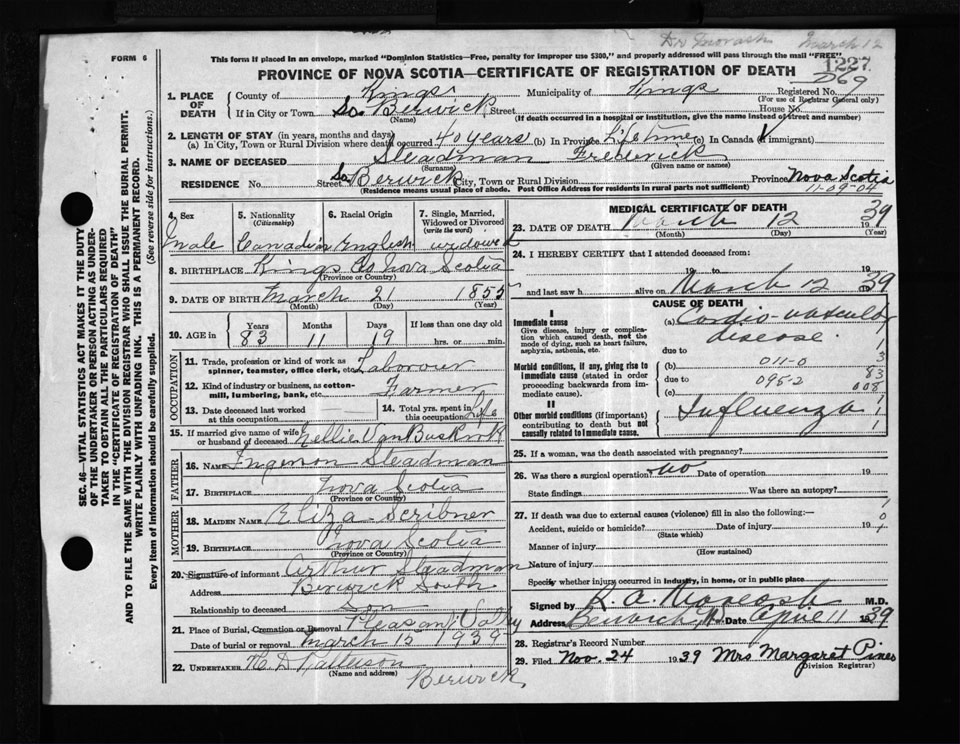 March 12
FORM 6
This form if placed in an envelope, marked "Dominion Statistics—Free, penalty for improper use $300," and properly addressed will pass through the mail "FREE"
1227
PROVINCE OF NOVA SCOTIA—CERTIFICATE OF REGISTRATION OF DEATH
D69
1. PLACE OF DEATH
County of Kings Municipality of Kings Registered No.
(For use of Registrar General only)
If in City or Town So. Berwick Street House No.
(Name) (If death occurred in a hospital or institution, give the name instead of street and number)
2. LENGTH OF STAY (in years, months and days)
(a) In City, Town or Rural Division where death occurred 40 years (b) In Province Life time (c) In Canada (if immigrant)
3. NAME OF DECEASED Steadman Frederick
(Surname) (Given name or names)
RESIDENCE No. Street So. Berwick City, Town or Rural Division Province Nova Scotia
(Residence means usual place of abode. Post Office Address for residents in rural parts not sufficient)
11-09-04
4. Sex
Male
5. Nationality
(Citizenship)
Canadian
6. Racial Origin
English
7. Single, Married, Widowed or Divorced
(write the word)
widowed
8. BIRTHPLACE Kings Co Nova Scotia
(Province or Country)
9. DATE OF BIRTH March 21 1855
(Month) (Day) (Year)
10. AGE in Years Months Days If less than one day old
83 11 19 hrs. or min.
OCCUPATION
11. Trade, profession or kind of work as spinner, teamster, office clerk, etc. Labourer
12. Kind of industry or business, as cotton-mill, lumbering, bank, etc. Farmer
13. Date deceased last worked at this occupation
14. Total yrs. spent in this occupation Life
15. If married give name of wife or husband of deceased Nellie VanBuskirk
FATHER
16. NAME Ingerson Steadman
17. BIRTHPLACE Nova Scotia
(Province or Country)
MOTHER
18. MAIDEN NAME Eliza Scribner
19. BIRTHPLACE Nova Scotia
(Province or Country)
20. Signature of informant Arthur Steadman
Address Berwick South
Relationship to deceased Son
21. Place of Burial, Cremation or Removal Pleasant Valley
Date of burial or removal March 15 1939
22. UNDERTAKER
(Name and address)
Berwick
MEDICAL CERTIFICATE OF DEATH
23. DATE OF DEATH March 12 1939
(Month) (Day) (Year)
24. I HEREBY CERTIFY that I attended deceased from:
19 to 19
and last saw h alive on March 12 1939
CAUSE OF DEATH
I
Immediate cause
Give disease, injury or complication which caused death, not the mode of dying, such as heart failure, asphyxia, asthenia, etc.
(a) Cardio-vascular
disease
due to
Morbid conditions, if any, giving rise to immediate cause (stated in order proceeding backwards from immediate cause).
(b) 011-0
due to 095-2
(c)
1
3
83
008
II
Other morbid conditions (if important) contributing to death but not causally related to immediate cause.
Influenza
1
1
25. If a woman, was the death associated with pregnancy?
26. Was there a surgical operation? no Date of operation 19
State findings Was there an autopsy?
27. If death was due to external causes (violence) fill in also the following:—
Accident, suicide or homicide? Date of injury 19
(State which)
Manner of injury
(How sustained)
Nature of injury
Specify whether injury occurred in Industry, in home, or in public place
Signed by M.D.
Address Berwick, N.S. Date April 11 1939
28. Registrar's Record Number
29. Filed Nov. 24 1939 Mrs Margaret Pines
(Division Registrar)
SEC. 46—VITAL STATISTICS ACT MAKES IT THE DUTY OF THE UNDERTAKER OR PERSON ACTING AS UNDERTAKER TO OBTAIN ALL THE PARTICULARS REQUIRED IN THE "CERTIFICATE OF REGISTRATION OF DEATH"
AND TO FILE THE SAME WITH THE DIVISION REGISTRAR WHO SHALL ISSUE THE BURIAL PERMIT.
WRITE PLAINLY WITH UNFADING INK. THIS IS A PERMANENT RECORD.
Every item of information should be carefully supplied. (See reverse side for instructions.)